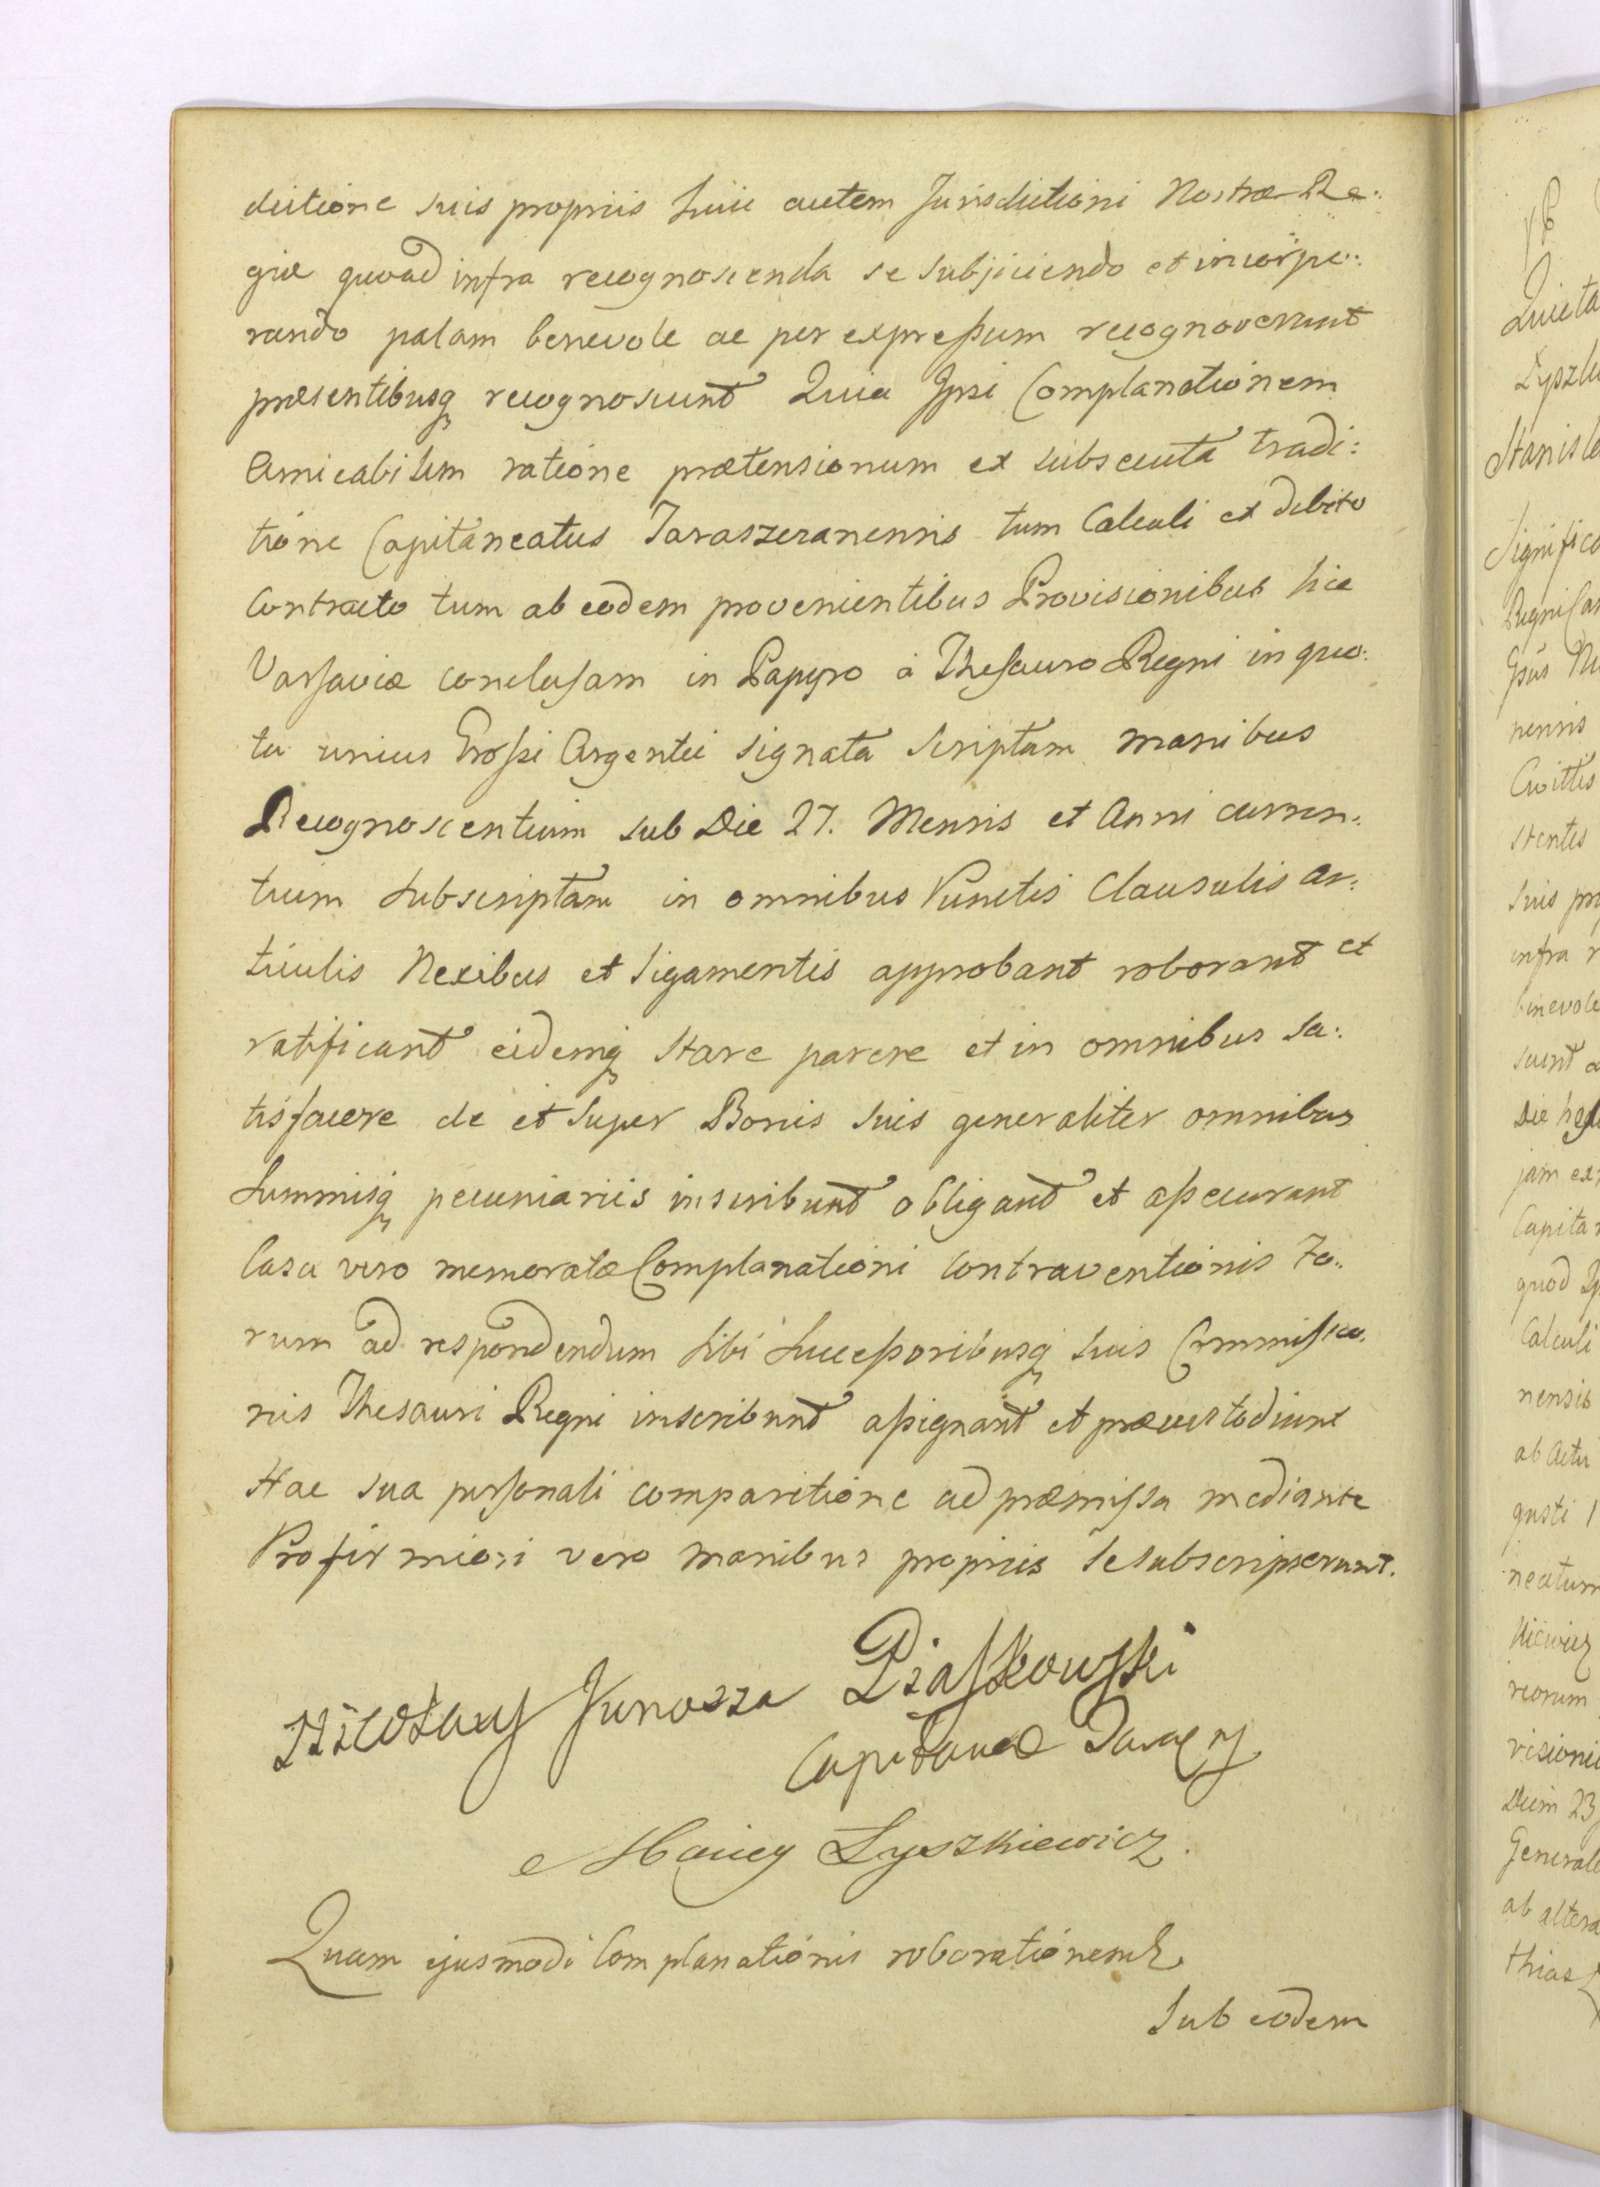 dictione suis propriis huic autem Jurisdictioni Nostræ Re:
giæ quoad infra recognoscenda se subjiciendo et incorpo:
rando palam benevole ac per expressum recognoverunt
præsentibusq recognoscunt Quia Ipsi Complanationem
Amicabilem ratione prætensionum ex subsecuta tradi:
tione Capitaneatus Taraszczanensis tum Calculi ex debito
Contracto tum ab eodem provenientibus Provisionibus hic
Varsaviæ conclusam in Papyro à Thesauro Regni in quo:
tu unius Grossi Argentei signata scriptam manibus
Recognoscentium sub Die 27. Mensis et Anni curren:
tium subscriptam in omnibus Punctis Clausulis ar:
ticulis Nexibus et Ligamentis approbant roborant et
ratificant eidemq stare parere et in omnibus sa:
tisfacere de et super Bonis suis generaliter omnibus
Summisq pecuniariis inscribunt obligant et assecurant
Casu vero memoratæ Complanationi Contraventionis Fo:
rum ad respondendum sibi Successoribusq suis Commissio:
riis Thesauri Regni inscribunt assignant et præcustodiunt
Hac sua personali comparitione ad præmissa mediante
Pro firmiori vero manibus propriis se subscripserunt.
Mikołay Junosza Piaskowski
Capitaneo
Maciey Lyszkiewicz.
Quam ejusmodi Complanationis roborationem
Sub eodem
Quieta
Lyszk
Stanisl
Significa
Regni Ca
nensis
stentes
suis pr
infra r
benevole
jam ex
Capita
quod
Calculi
nensis
ab Actu
gusti 1
neatum
kiewicz
riorum
visioni
Diem 23
General
ab altera
thias